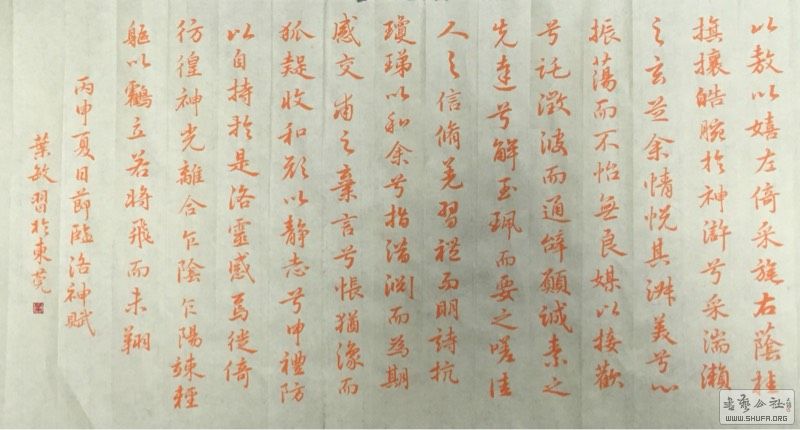 以敖以嬉左倚采旄右蔭桂
旗攘皓腕於神滸兮采湍瀨
之玄芝余情悅其淑美兮心
振蕩而不怡無良媒以接歡
兮託微波而通辭願誠素之
先達兮解玉珮而要之嗟佳
人之信脩羌習禮而明詩抗
瓊珶以和余兮指潛淵而為期
感交甫之棄言兮悵猶豫而
狐疑收和顏以靜志兮申禮防
以自持於是洛靈感焉徙倚
彷徨神光離合乍陰乍陽竦輕
軀以鶴立若將飛而未翔
丙申夏日節臨洛神賦
葉敏習於東莞
書藝公社
WWW.SHUFA.ORG